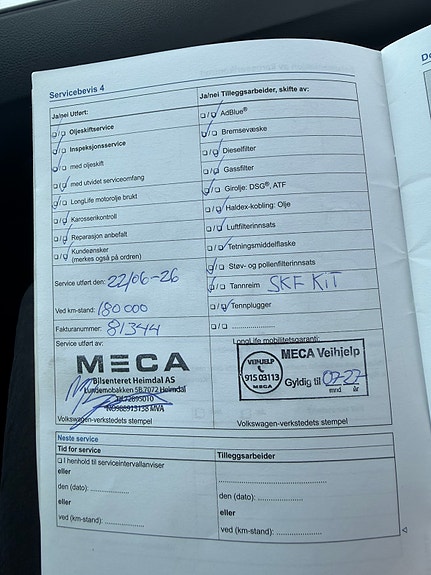 Servicebevis 4
Ja/nei Utført:
Oljeskiftservice
Inspeksjonsservice
med oljeskift
med utvidet serviceomfang
LongLife motorolje brukt
Karossenkontroll
Reparasjon anbefalt
Kundeønsker
(merkes også på ordren)
Service utført den: 22/06-26
Ved km-stand: 180 000
Fakturanummer: 81344
Service utført av:
MECA
Bilsenteret Heimdal AS
Lundemobakken 5B, 7072 Heimdal
Tlf. 72895010
NO988913138 MVA
Volkswagen-verkstedets stempel
Ja/nei Tilleggsarbeider, skifte av:
AdBlue®
Bremsevæske
Dieselfilter
Gassfilter
Girolje: DSG®, ATF
Haldex-kobling: Olje
Luftfilterinnsats
Tetningsmiddelflaske
Støv- og pollenfilterinnsats
Tannreim SKF KIT
Tennplugger
LongLife mobilitetsgaranti:
VEIHJELP
915 03113
MECA
MECA Veihjelp
Gyldig til 07-27
mnd år
Volkswagen-verkstedets stempel
Neste service
Tid for service
I henhold til serviceintervallanviser
eller
den (dato):
eller
ved (km-stand):
Tilleggsarbeider
den (dato):
eller
ved (km-stand):